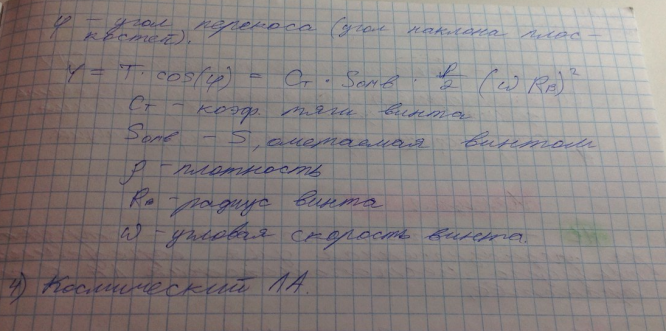 φ – угол переноса (угол наклона плос-
костей).
Y = T · cos(φ) = Cт · Sомв · ρ/2 (ω Rв)²
Cт – коэф. тяги винта
Sомв – S, ометаемая винтом
ρ – плотность
Rв – радиус винта
ω – угловая скорость винта.
4) Космический ЛА.